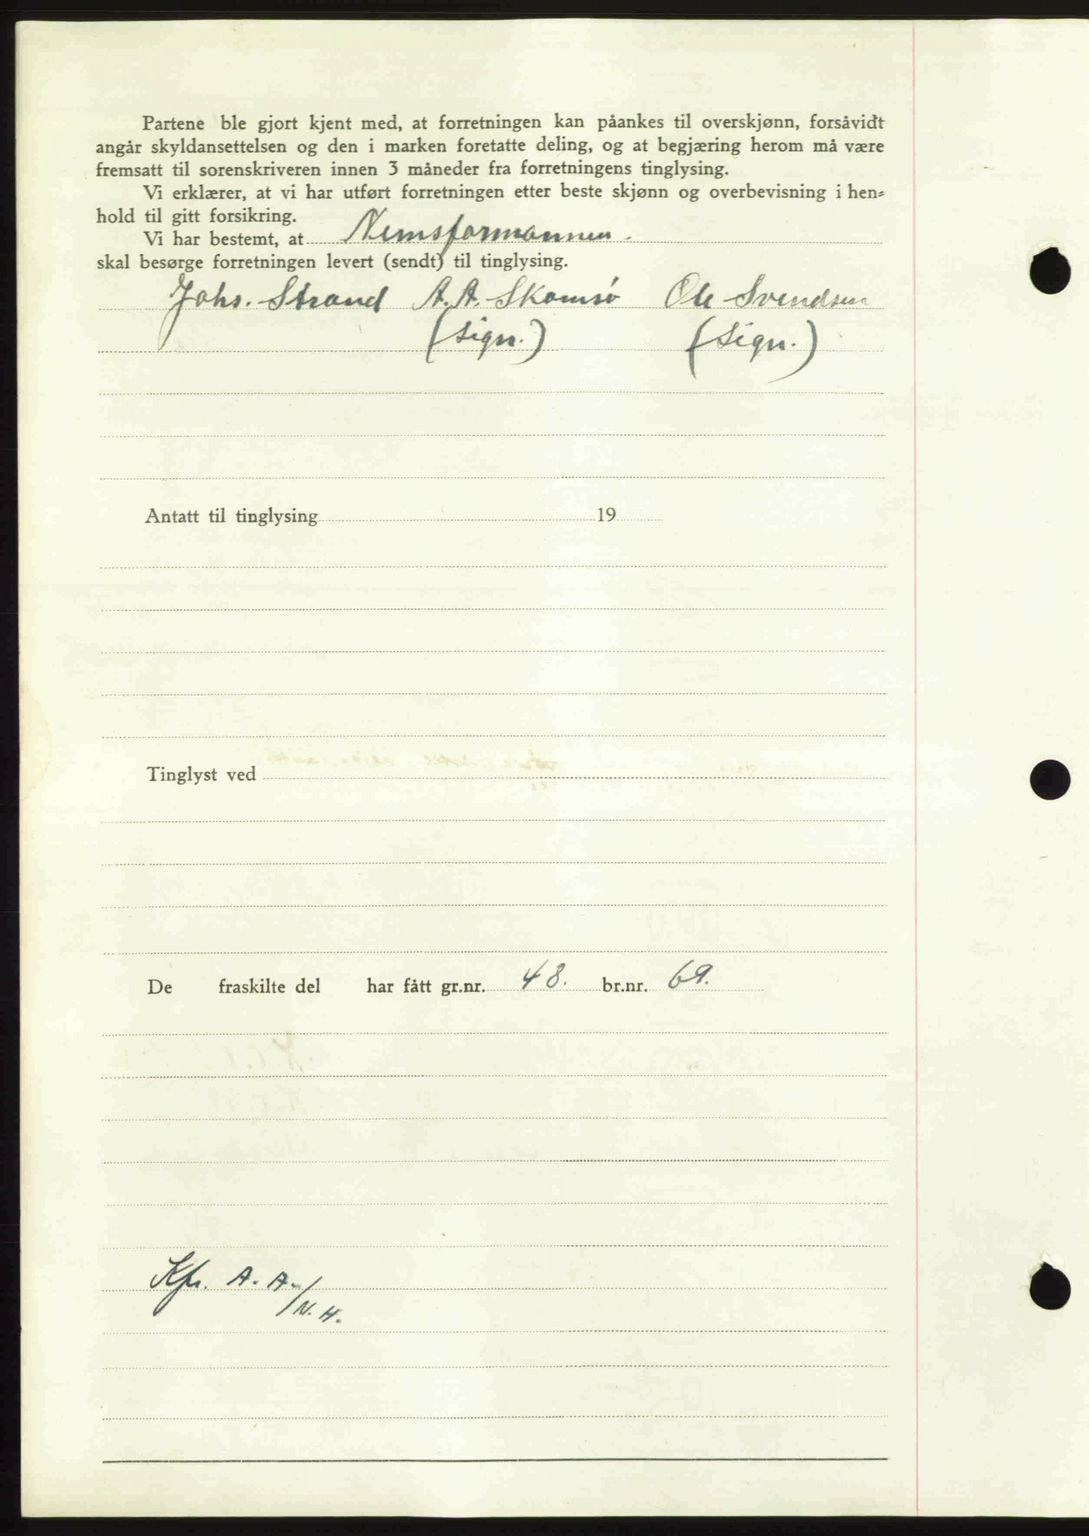 Partene ble gjort kjent med, at forretningen kan påankes til overskjønn, forsåvidt
angår skyldansettelsen og den i marken foretatte deling, og at begjæring herom må være
fremsatt til sorenskriveren innen 3 måneder fra forretningens tinglysing.
Vi erklærer, at vi har utført forretningen etter beste skjønn og overbevisning i hen-
hold til gitt forsikring.
Vi har bestemt, at Nemsformannen.
skal besørge forretningen levert (sendt) til tinglysing.
Johs. Strand A. A. Skomsø Ole Svendsen
(sign.) (sign.)
Antatt til tinglysing 19
Tinglyst ved
De fraskilte del har fått gr.nr. 48. br.nr. 69.
Kfr. A. A./N. H.